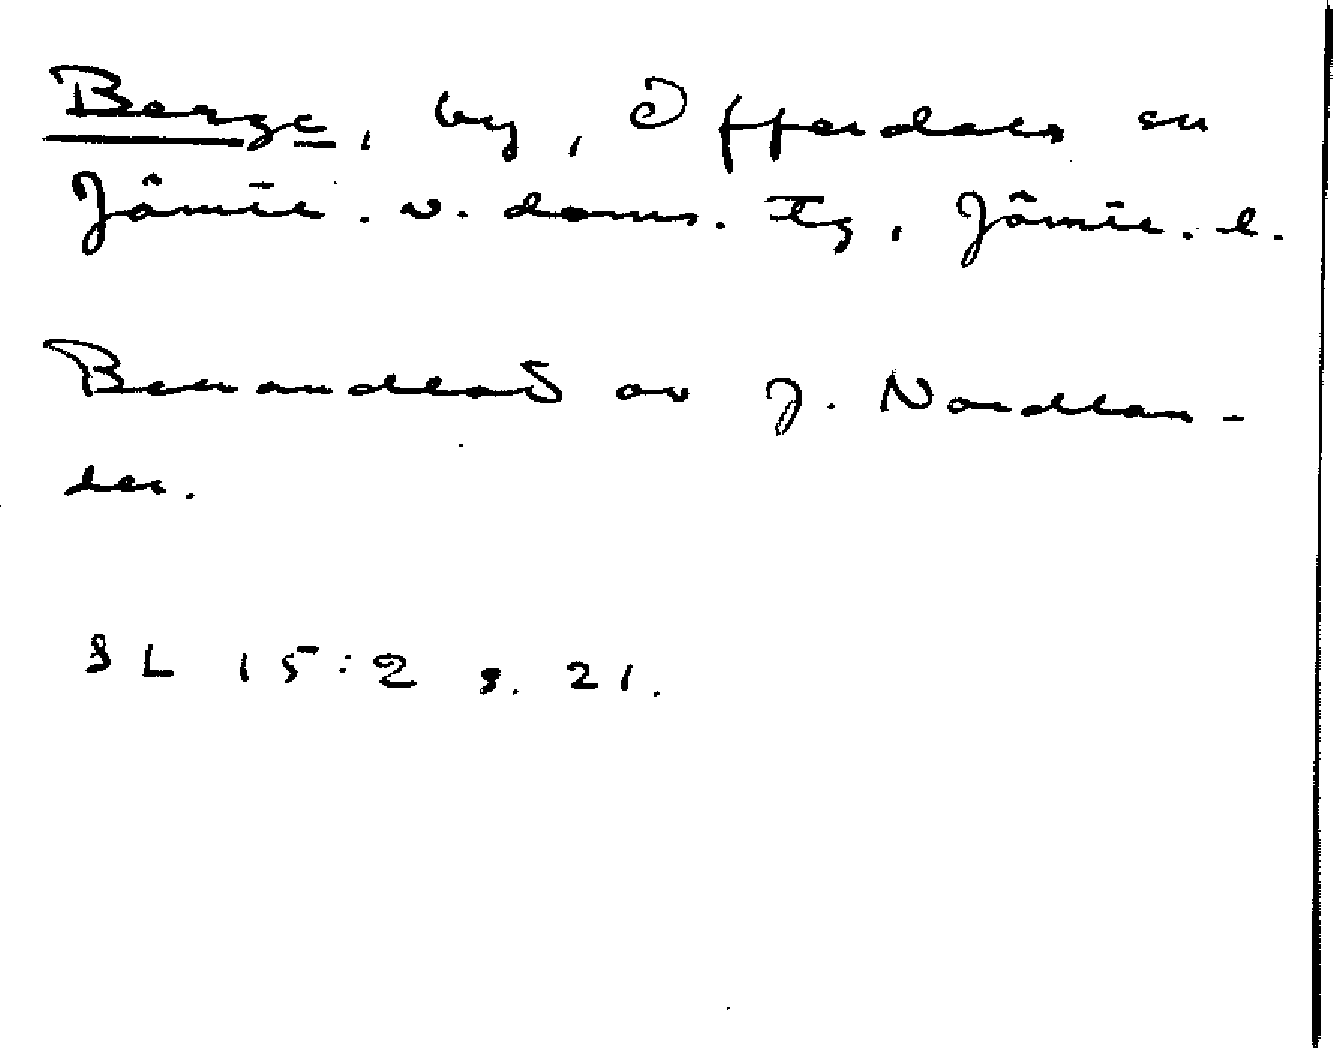 Berge, by, Offerdals sn
Jämtl. v. doms. tg, Jämtl. l.
Behandlat av J. Nordlan-
der.
SL 15:2 s. 21.